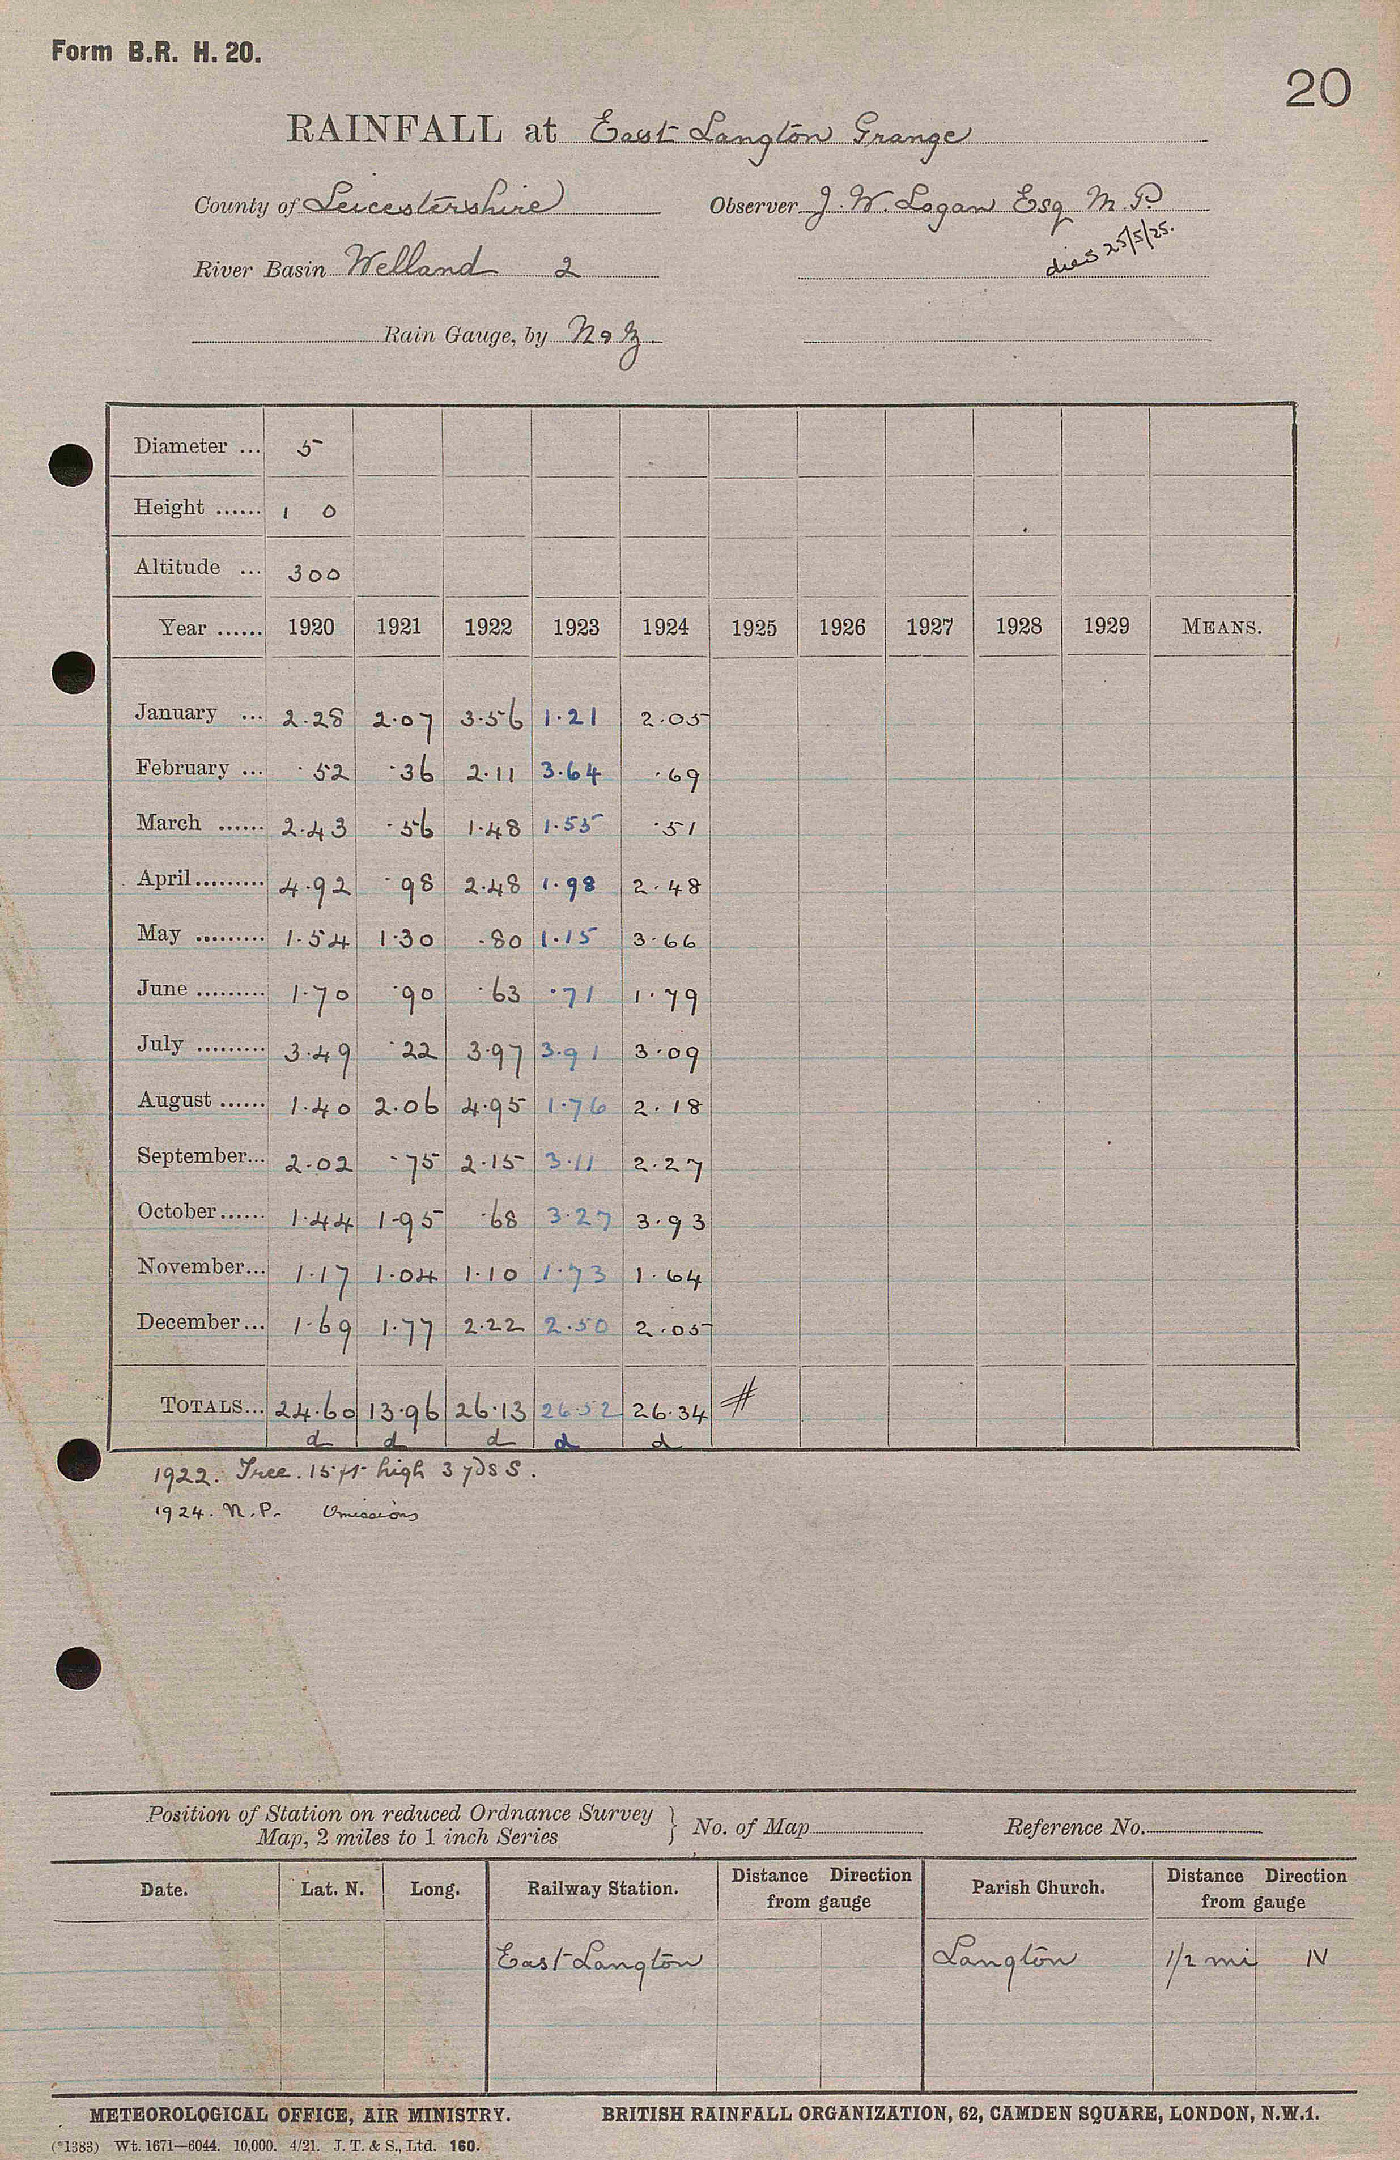 Form B.R. H. 20.
20
RAINFALL at East Langton Grange
County of Leicestershire Observer J. W. Logan Esq M.P.
River Basin Welland 2 dies 25/5/25.
Rain Gauge, by N & Z.
Diameter ... 5
Height ...... 1 0
Altitude ... 300
Year ...... 1920 1921 1922 1923 1924 1925 1926 1927 1928 1929 MEANS.
January ... 2.28 2.07 3.56 1.21 2.05
February ... .52 .36 2.11 3.64 .69
March ...... 2.43 .56 1.48 1.55 .51
April......... 4.92 .98 2.48 1.98 2.48
May ......... 1.54 1.30 .80 1.15 3.66
June ......... 1.70 .90 .63 .71 1.79
July ......... 3.49 .22 3.97 3.91 3.09
August ...... 1.40 2.06 4.95 1.76 2.18
September... 2.02 .75 2.15 3.11 2.27
October...... 1.44 1.95 .68 3.27 3.93
November... 1.17 1.04 1.10 1.73 1.64
December... 1.69 1.77 2.22 2.50 2.05
TOTALS... 24.60 13.96 26.13 26.52 26.34 #
d d d d d
1922. Tree. 15 ft high 3 yds S.
1924. N.P. Omissions
Position of Station on reduced Ordnance Survey
Map, 2 miles to 1 inch Series } No. of Map Reference No.
Date. Lat. N. Long. Railway Station. Distance Direction from gauge Parish Church. Distance Direction from gauge
East Langton Langton 1/2 mi N
METEOROLOGICAL OFFICE, AIR MINISTRY. BRITISH RAINFALL ORGANIZATION, 62, CAMDEN SQUARE, LONDON, N.W.1.
(*1383) Wt. 1671—6044. 10,000. 4/21. J. T. & S., Ltd. 160.